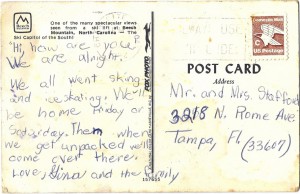 One of the many spectacular views
seen from a ski lift at Beech
Mountain, North Carolina - The
Ski Capitol of the South!
"Hi, how are you?"
We are alright.
We all went skiing
and iceskating. We'll
be home Friday or
Saturday. Then when
we get unpacked we'll
come over there.
Love, Gina and the family
POST CARD
Address
Mr. and Mrs. Stafford
3218 N. Rome Ave
Tampa, Fl
(33607)
157655